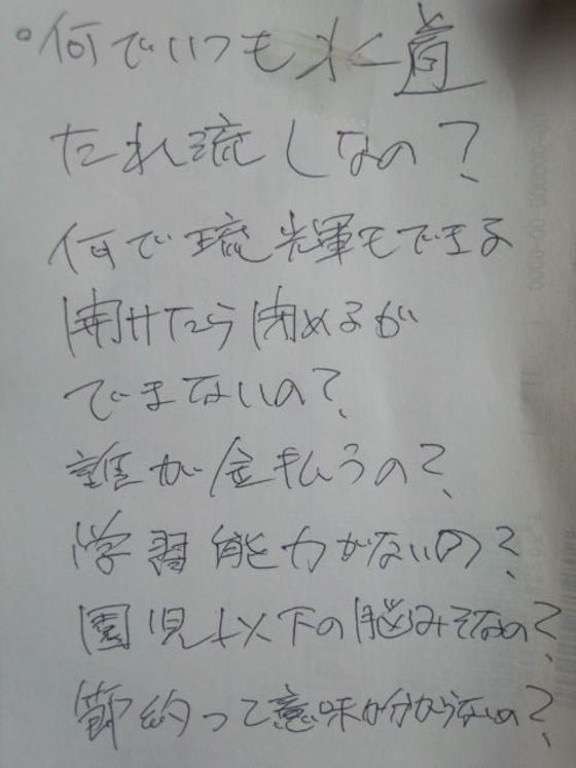 。何でいつも水道
たれ流しなの?
何で琉輝もできる
開けたら閉めるが
できないの?
誰が金払うの?
学習能力がないの?
園児以下の脳みそなの?
節約って意味が分からないの?